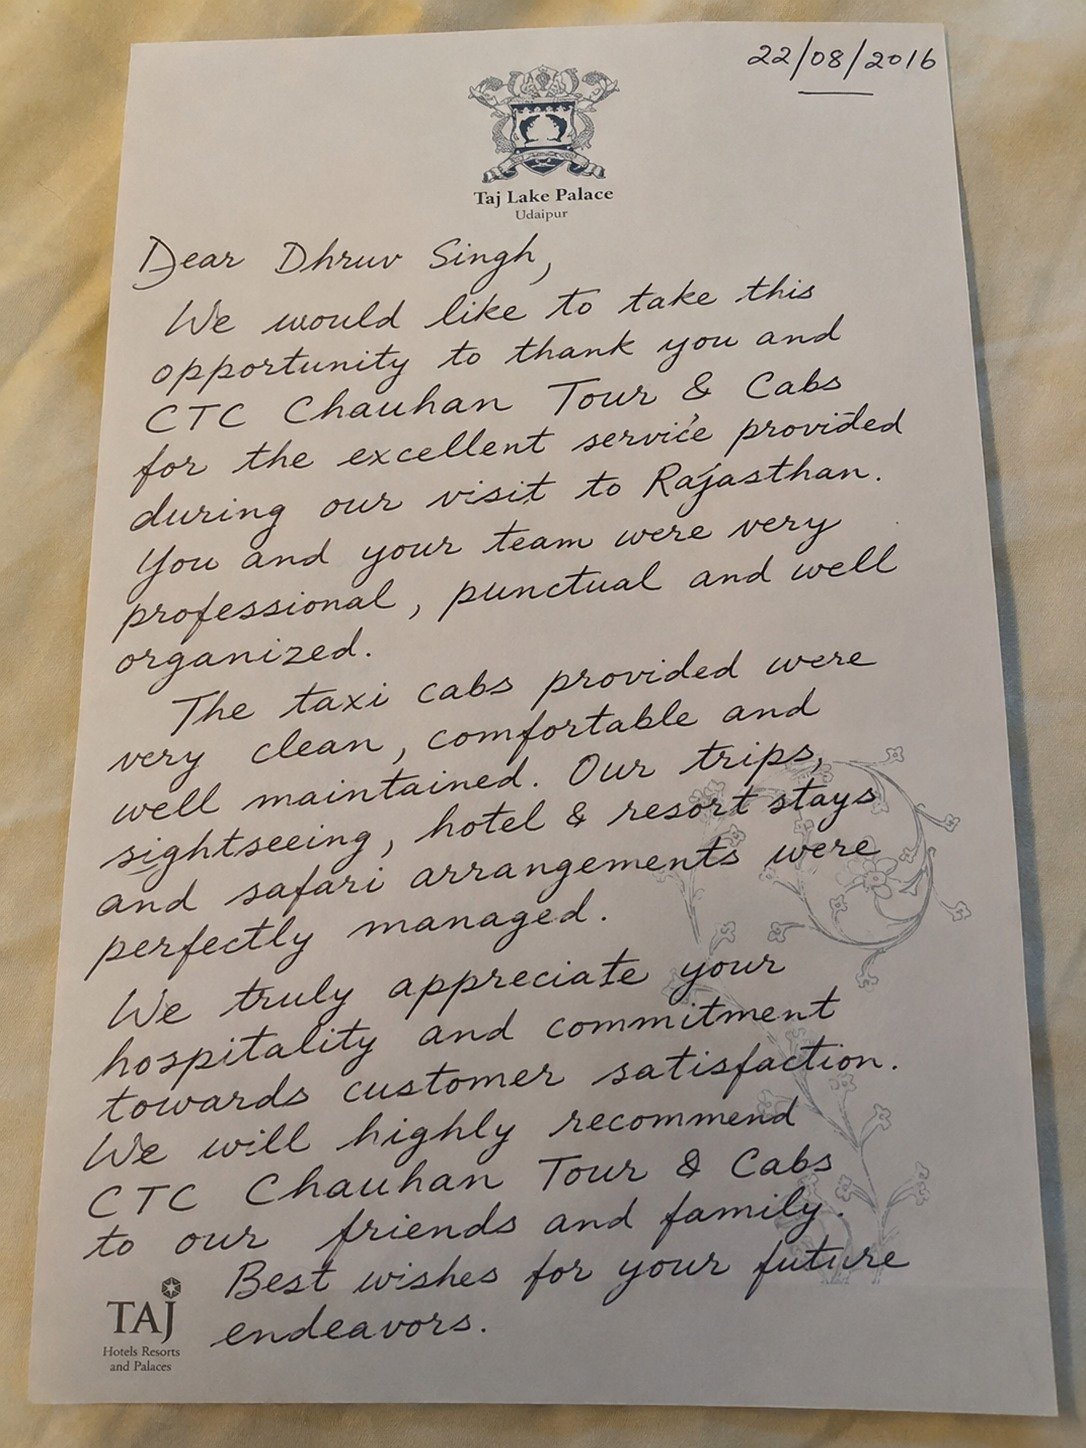 22/08/2016
Taj Lake Palace
Udaipur
Dear Dhruv Singh,
We would like to take this
opportunity to thank you and
CTC Chauhan Tour & Cabs
for the excellent service provided
during our visit to Rajasthan.
You and your team were very
professional, punctual and well
organized.
The taxi cabs provided were
very clean, comfortable and
well maintained. Our trips,
sightseeing, hotel & resort stays
and safari arrangements were
perfectly managed.
We truly appreciate your
hospitality and commitment
towards customer satisfaction.
We will highly recommend
CTC Chauhan Tour & Cabs
to our friends and family.
Best wishes for your future
endeavors.
TAJ
Hotels Resorts
and Palaces